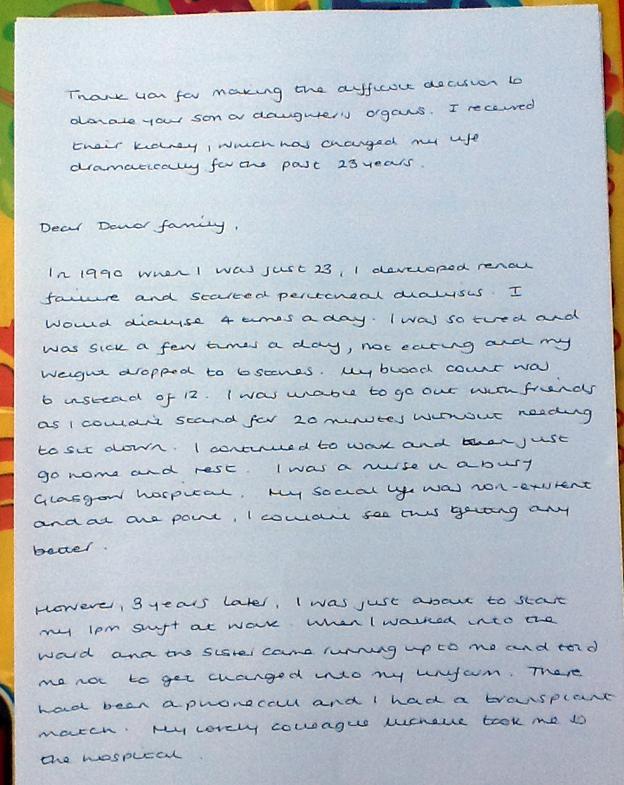 Thank you for making the difficult decision to
donate your son or daughter's organs. I received
their kidney, which has changed my life
dramatically for the past 23 years.
Dear Donor family,
In 1990 when I was just 23, I developed renal
failure and started peritoneal dialysis. I
would dialyse 4 times a day. I was so tired and
was sick a few times a day, not eating and my
weight dropped to 6 stones. My blood count was
6 instead of 12. I was unable to go out with friends
as I couldn't stand for 20 minutes without needing
to sit down. I continued to work and then just
go home and rest. I was a nurse in a busy
Glasgow hospital. My social life was non-existent
and at one point, I couldn't see this getting any
better.
However, 3 years later, I was just about to start
my 1pm shift at work. When I walked into the
ward and the sister came running up to me and told
me not to get changed into my uniform. There
had been a phonecall and I had a transplant
match. My lovely colleague Michelle took me to
the hospital.